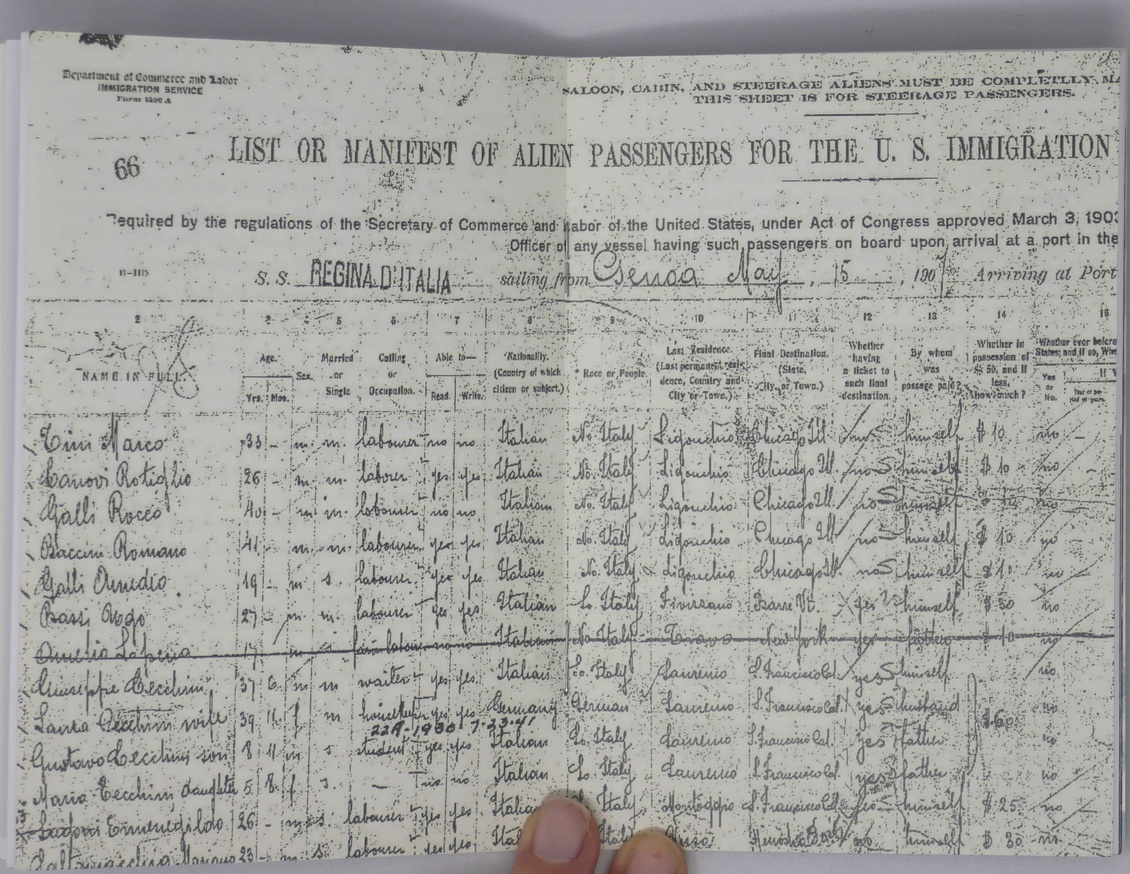 Department of Commerce and Labor
IMMIGRATION SERVICE
Form 1500 A
SALOON, CABIN, AND STEERAGE ALIENS MUST BE COMPLETLLY MA
THIS SHEET IS FOR STEERAGE PASSENGERS.
66
LIST OR MANIFEST OF ALIEN PASSENGERS FOR THE U. S. IMMIGRATION
Required by the regulations of the Secretary of Commerce and Labor of the United States, under Act of Congress approved March 3, 1903
Officer of any vessel having such passengers on board upon arrival at a port in the
S. S. REGINA D'ITALIA sailing from Genoa May, 15, 1907 Arriving at Port
2 3 5 6 7 8 9 10 11 12 13 14 15
NAME IN FULL. Age. Yrs. Mos. Sex. Married or Single Calling or Occupation. Able to— Read. Write. Nationality. (Country of which citizen or subject.) Race or People. Last Residence. (Last permanent residence, Country and City or Town.) Final Destination. (State, City or Town.) Whether having a ticket to such final destination. By whom was passage paid? Whether in possession of $50, and if less, how much? Whether ever before Yes or No.
Marco 33 - m. m. labourer no no Italian No. Italy Ligonchio Chicago Ill. no himself $ 10 no -
26 - m m labourer yes yes Italian No. Italy Ligonchio Chicago Ill. no himself $ 10 no
Galli Rocco 40 - m m labourer no no Italian No. Italy Ligonchio Chicago Ill. no himself $ 10 no
Baccini Romano 41 - m m labourer yes yes Italian No. Italy Ligonchio Chicago Ill. no himself $ 10 no
Galli Amedio 19 - m s labourer yes yes Italian No. Italy Ligonchio Chicago Ill. no himself $ 10 no
Bassi Ugo 27 - m labourer yes yes Italian So. Italy Fivizzano Barre Vt. yes himself $ 30 no
Amelia Italian No. Italy New York yes father $ 10 no
Giuseppe Cecchini 37 6 m m waiter yes yes Italian So. Italy Laurenio S. Francisco Cal. yes himself no
Laura Cecchini wife 39 11 f m housekeeper yes yes Germany German Laurenio S. Francisco Cal. yes husband $ 60 no
229-1930 7-23-41
Gustavo Cecchini son 8 11 m s student yes yes Italian So. Italy Laurenio S. Francisco Cal. yes father no
Maria Cecchini daughter 5 8 f s - no no Italian So. Italy Laurenio S. Francisco Cal. yes father no
Ermenegildo 26 - m s labourer yes yes Italian Italy Montoggio S. Francisco Cal. yes himself $ 25 no
23 - m s labourer yes yes himself $ 30 no